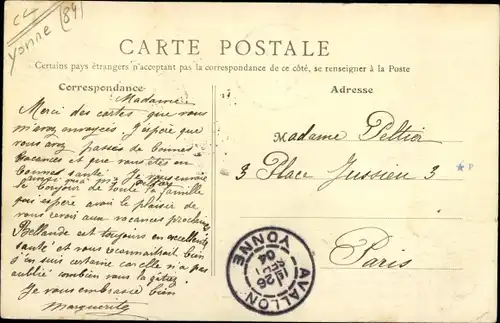 CC
Yonne (89)
CARTE POSTALE
Certains pays étrangers n'acceptant pas la correspondance de ce côté, se renseigner à la Poste
Correspondance
Adresse
Madame
Merci des cartes que vous
m'avez envoyées J'espère que
vous avez passés de bonnes
vacances et que vous êtes en
bonnes santé. Je vous envoie
ainsi qu'à Mr
le bonjour de toute la famille
puis espère avoir le plaisir de
vous revoir aux vacances prochaines
est toujours en excellente
santé et vous reconnaitrait bien
j'en suis certaine car elle n'a pas
oublié combien vous la gâtiez
Je vous embrasse bien
Marguerite
Madame Peltier
3 Place Jussieu 3
Paris
AVALLON
YONNE
26
04